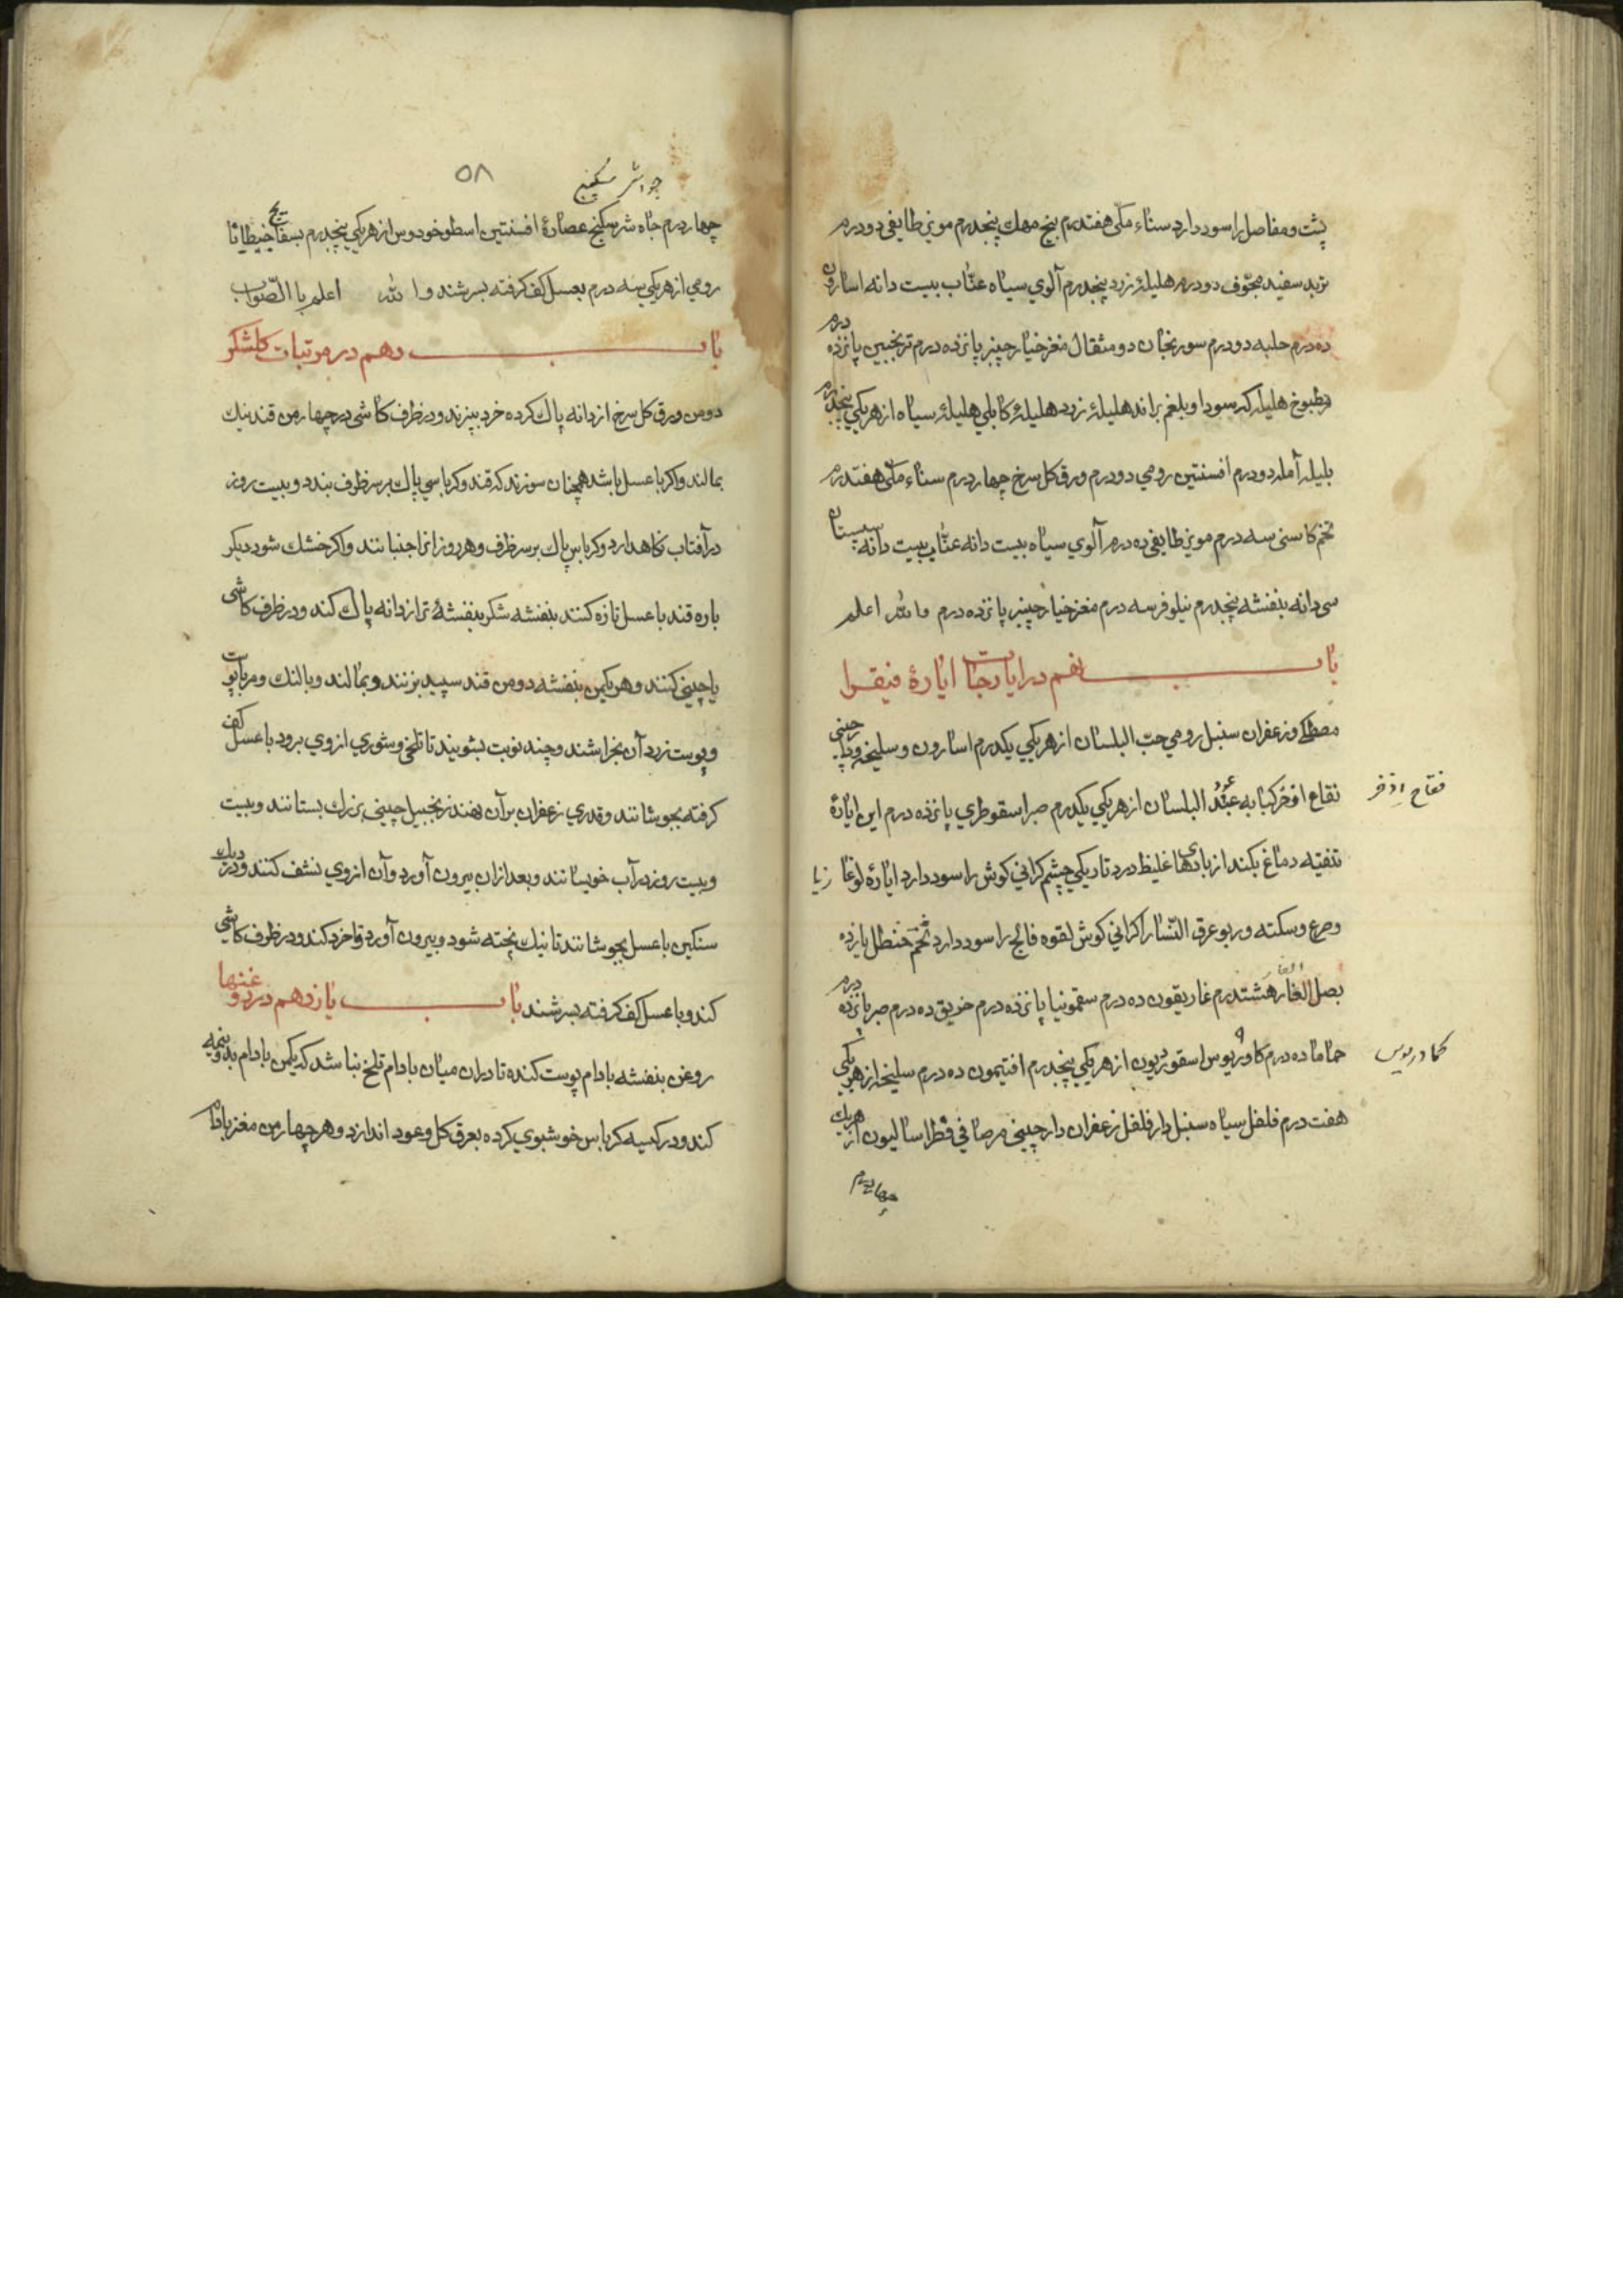 پشت و مفاصل را سود دارد سناء مکی هفتدرم بیخ مهک پنجدرم مویز طایفی دودرم
تربد سفید مجوّف دودرم هلیلهٔ زرد پنجدرم آلوی سیاه عنّاب بیست دانه اسارون
ده درم حلبه دودرم سورنجان دو مثقال مغز خیارچنبر پانزده درم ترنجبین پانزده درم
مطبوخ هلیله که سودا و بلغم براند هلیلهٔ زرد هلیلهٔ کابلی هلیلهٔ سیاه از هریکی پنجدرم
بلیله آمله دودرم افسنتین رومی دودرم ورق کل سرخ چهاردرم سناء مکی هفتدرم
تخم کاسنی سه درم مویز طایفی ده درم آلوی سیاه بیست دانه عنّاب بیست دانه سپستان
سی دانه بنفشه پنجدرم نیلوفر سه درم مغز خیارچنبر پانزده درم والله اعلم
باب نهم در ایارجات ایارهٔ فیقرا
مصطکی وزعفران سنبل رومی حبّ البلسان از هریکی یکدرم اسارون و سلیخه و دارچینی
نقاع اذخر کبابه عود البلسان از هریکی یکدرم صبر اسقوطری پانزده درم این ایارهٔ
فقاح اذخر
تنقیه دماغ بکند از بادیها غلیظ درد تاریکی چشم کرانی کوش را سود دارد ایارهٔ لوغا زیا
وصرع وسکته و ربو عرق النّسا را کرانی کوش لقوه فالج را سود دارد شحم حنظل یازده
بصل الفار هشتدرم غاریقون ده درم سقمونیا پانزده درم خریق ده درم صبر پانزده درم
حماما ده درم کادریوس اسقوردیون از هریکی پنجدرم افتیمون ده درم سلیخه از هریکی
کمادریوس
هفت درم فلفل سیاه سنبل دارفلفل زعفران دارچینی مرصافی فطراسالیون از هریک
چهاردرم
۵۸
جواشر سکبینج
چهاردرم جاه شر سکبینج عصارهٔ افسنتین اسطوخودوس از هریکی پنجدرم بسفایج جنطیانا
رومی از هریکی سه درم بعسل کف کرفته بسرشند والله اعلم باالصّواب
باب دهم در مربّیات کلشکر
دومن ورق کل سرخ از دانه پاک کرده خرد ببرند و در ظرف کاشی در چهارمن قند نیک
بمالند واکر با عسل باشد همچنان سوزند که قند وکرباسی پاک بر سر ظرف بندد و بیست روز
در آفتاب نکاه دارد وکرباس پاک بر سر ظرف وهر روز انرا جنبانند واکر خشک شود دیکر
باره قند با عسل تازه کنند بنفشه شکر بنفشهٔ تر از دانه پاک کند ودر ظرف کاشی
یا چینی کنند وهر یکمن بنفشه دومن قند سپید بزنند وبمالند وبالنک ومربات
وپوست زرد آن بخراشند وچند نوبت بشویند تا تلخی وشوری از وی برود با عسل کف
کرفته بجوشانند وقدری زعفران بر آن نهند زنجبیل چینی بزرک بستانند وبیست
وبیست روز در آب خویسانند وبعد ازان بیرون آورد وآن از وی نشف کنند ودر دیک
سنکین با عسل بجوشانند تا نیک پخته شود وبیرون آورد وخرد کند ودر ظرف کاشی
کند وبا عسل کف کرفته بسرشند باب یازدهم در روغنها
روغن بنفشه بادام پوست کنده تا دران میان بادام تلخ نباشد که یکمن بادام بدونیمه
کند ودر کیسه کرباس خوشبوی کرده بعرق کل وعود اندازد وهر چهارمن مغز بادام